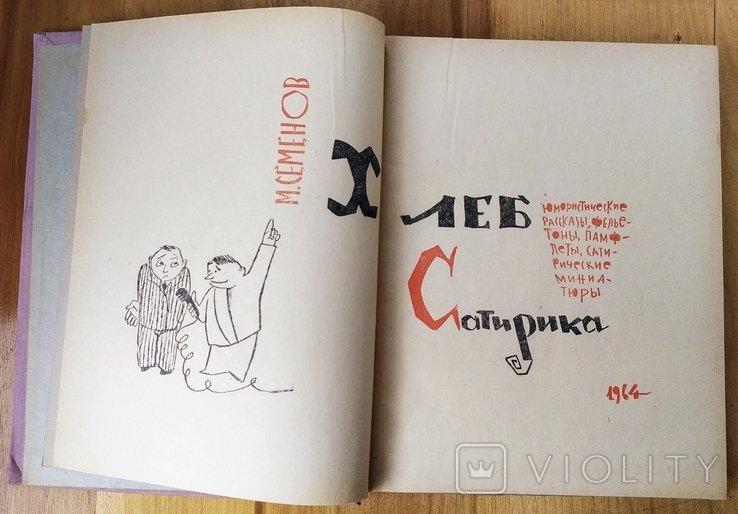 М. СЕМЕНОВ
ХЛЕБ
Сатирика
юмористические
рассказы, фелье-
тоны, памф-
леты, сати-
рические
миниа-
тюры
1964
VIOLITY